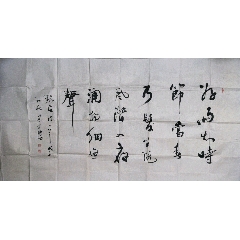 好雨知時
節當春
乃發生隨
風潛入夜
潤物細無
聲